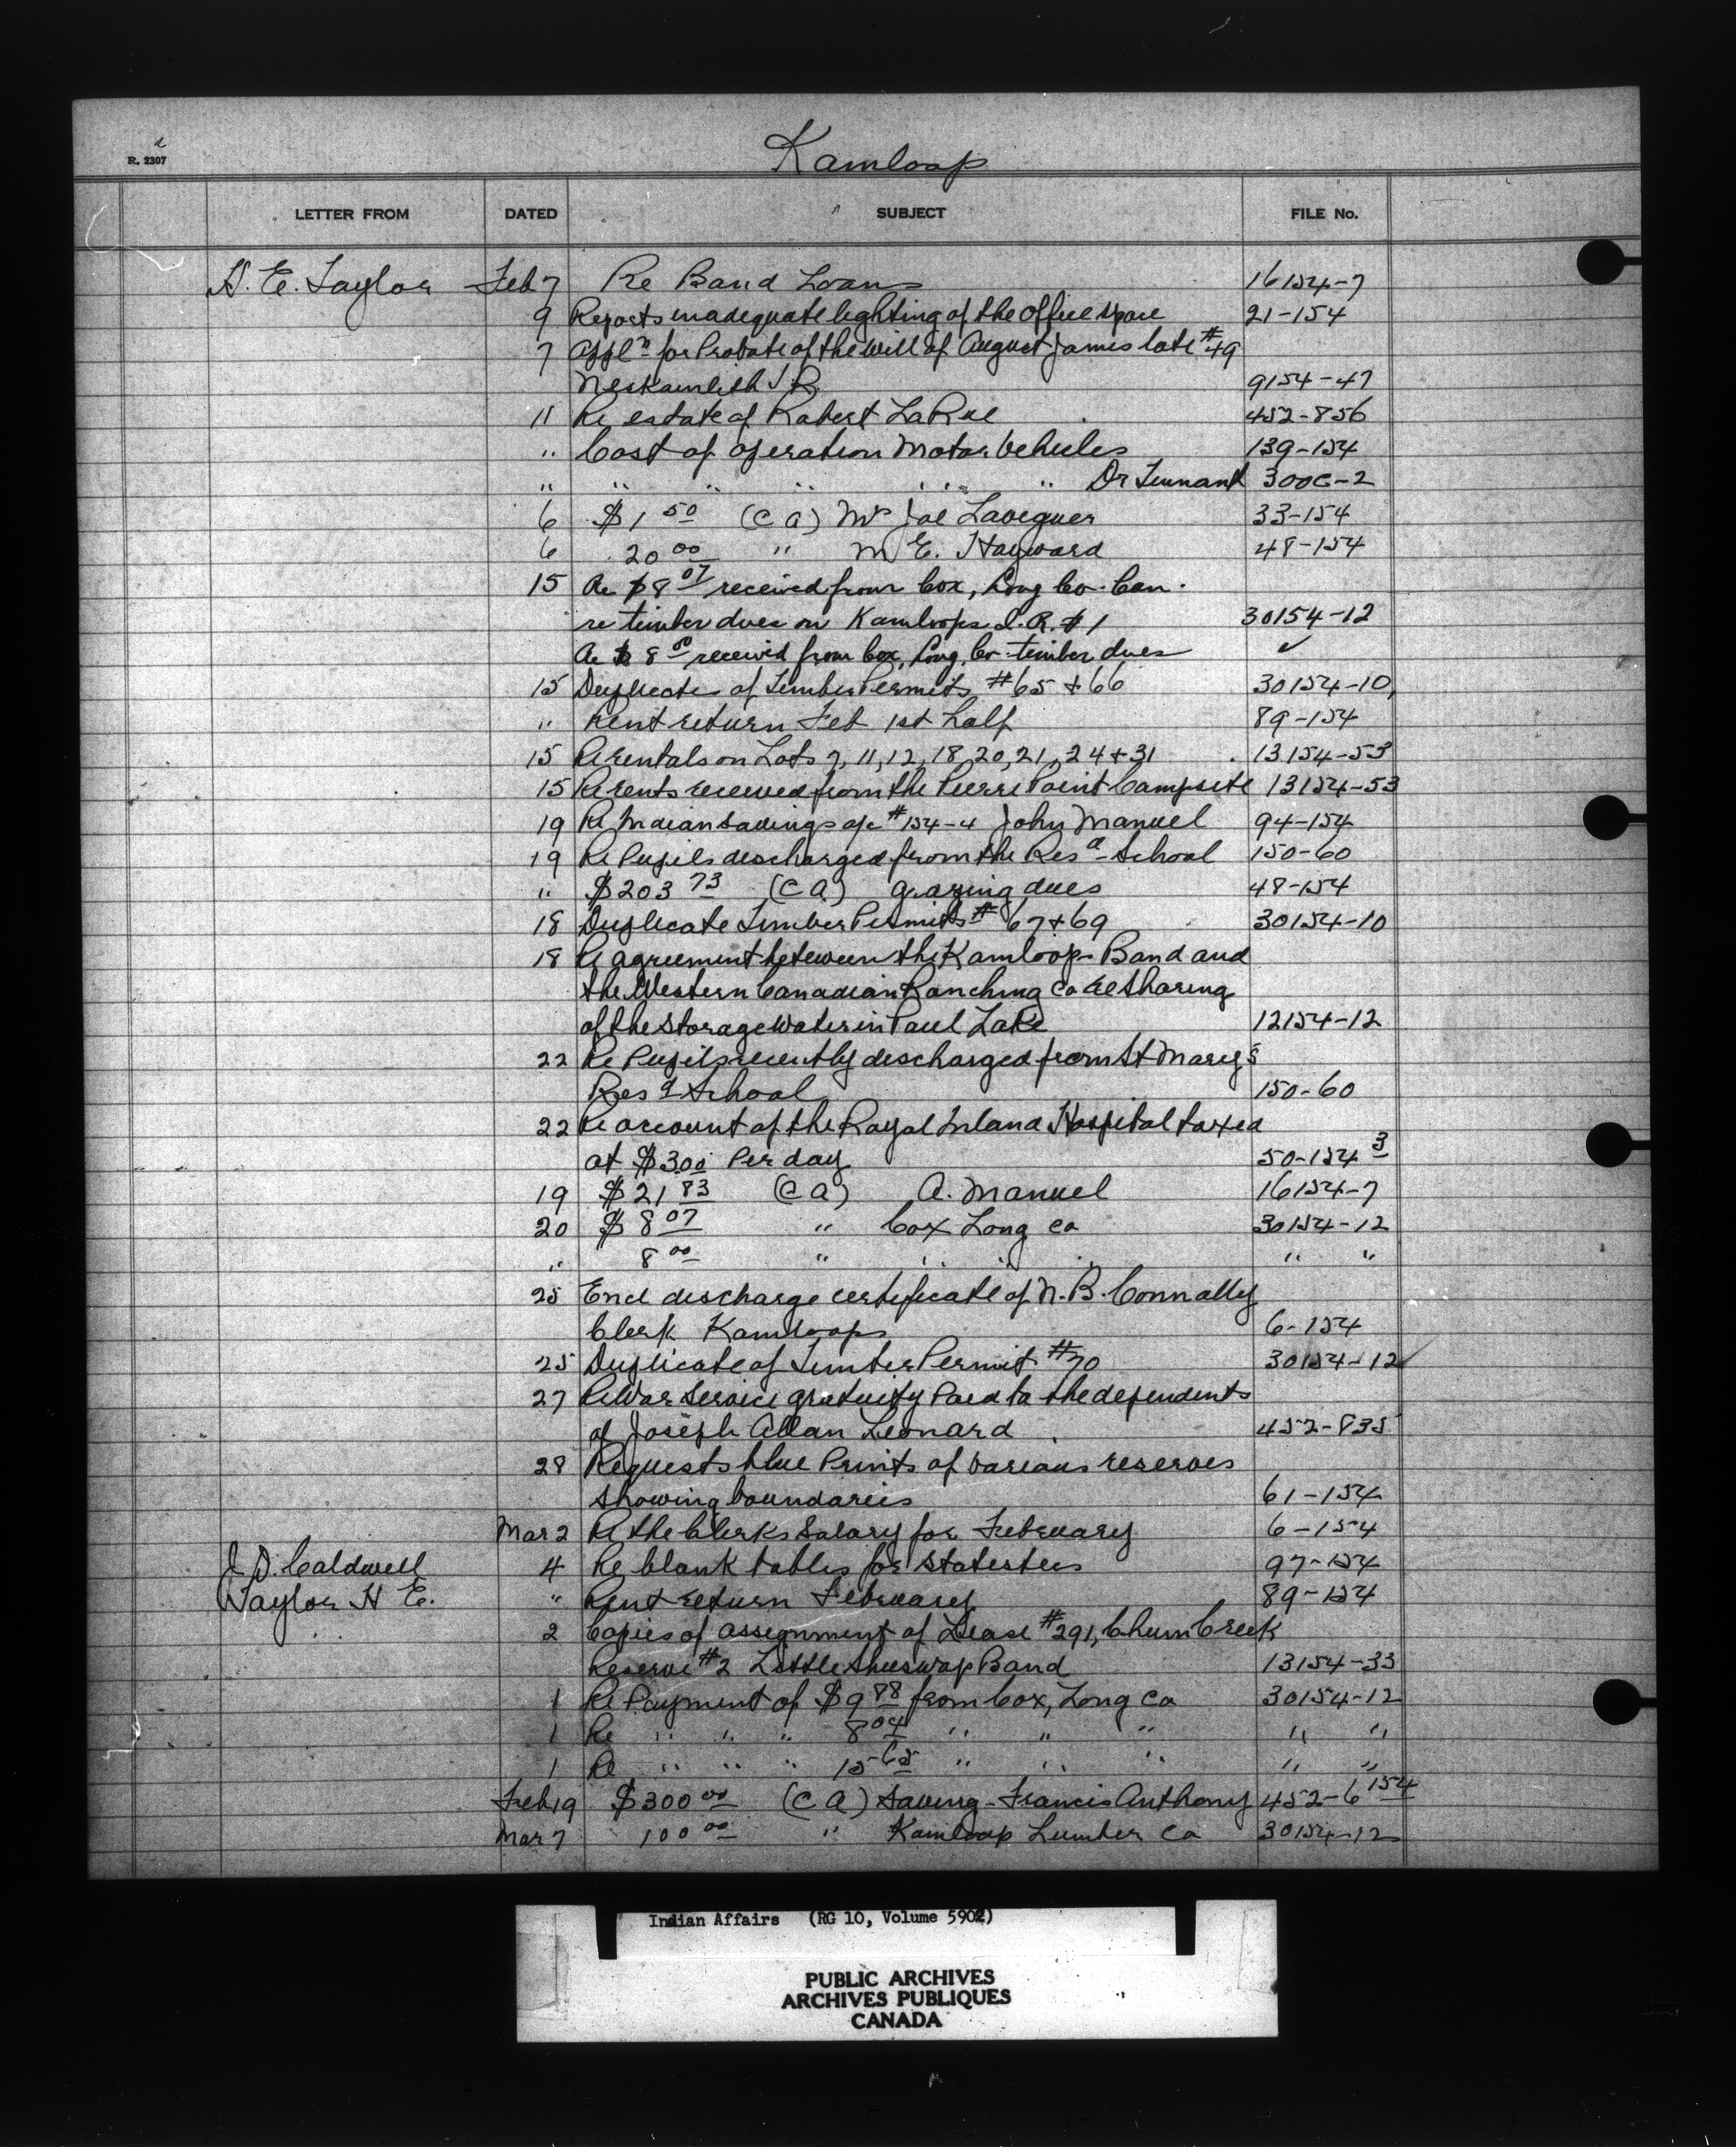 R. 2307
Kamloop
LETTER FROM DATED SUBJECT FILE No.
H. E. Taylor Feb 7 Re Band Loans 16154-7
9 Reports inadequate lighting of the office space 21-154
7 Appl'n for Probate of the Will of August James late #49
Neskamlith I.R. 9154-47
11 Re estate of Robert LaRue 452-856
" Cost of operation Motor Vehicles 139-154
" " " " " " Dr Tennant 300C-2
6 $1 50 (C A) Mrs Joe 33-154
6 20 00 " M E. Hayward 48-154
15 Re $8 07 received from Cox, Long Co. Can.
re timber dues on Kamloops I.R. #1 30154-12
Re $ 8 00 received from Cox, Long, Co. timber dues ✓
15 Duplicates of Timber Permits #65 + 66 30154-10
" Rent return Feb 1st half 89-154
15 Re rentals on Lots 7, 11, 12, 18, 20, 21, 24 + 31 13154-53
15 Re rents received from the Pierre Point Campsite 13154-53
19 Re Indian Savings a/c #154-4 John Manuel 94-154
19 Re Pupils discharged from the Res'd School 150-60
" $203 73 (C A) grazing dues 48-154
18 Duplicate Timber Permits # 67 + 69 30154-10
18 Re agreement between the Kamloop Band and
the Western Canadian Ranching Co Re Sharing
of the Storage Water in Paul Lake 12154-12
22 Re Pupils recently discharged from St Mary's
Res'd School 150-60
22 Re account of the Royal Inland Hospital taxed
at $3.00 Per day 50-154 3
19 $21 83 (C A) A. Manuel 16154-7
20 $8 07 " Cox Long Co 30154-12
" 8 00 " " " " " "
25 Encl discharge certificate of N. B. Connally
Clerk Kamloops 6-154
25 Duplicate of Timber Permit #70 30154-12
27 Re War Service gratuity Paid to the dependents
of Joseph Allan Leonard 452-835
28 Requests blue Prints of various reserves
showing boundaries 61-154
Mar 2 Re the Clerks Salary for February 6-154
J. D. Caldwell 4 Re blank tables for Statistics 97-154
Taylor H E. " Rent return February 89-154
2 Copies of assignment of Lease #291, Chum Creek
Reserve #2 Little Shuswap Band 13154-33
1 Re Payment of $9 88 from Cox, Long Co 30154-12
1 Re " " " 8 04 " " " " "
1 Re " " " 15 65 " " " " "
Feb 19 $300 00 (C A) Saving - Francis Anthony 452-6 154
Mar 7 100 00 " Kamloop Lumber Co 30154-12
Indian Affairs (RG 10, Volume 5902)
PUBLIC ARCHIVES
ARCHIVES PUBLIQUES
CANADA